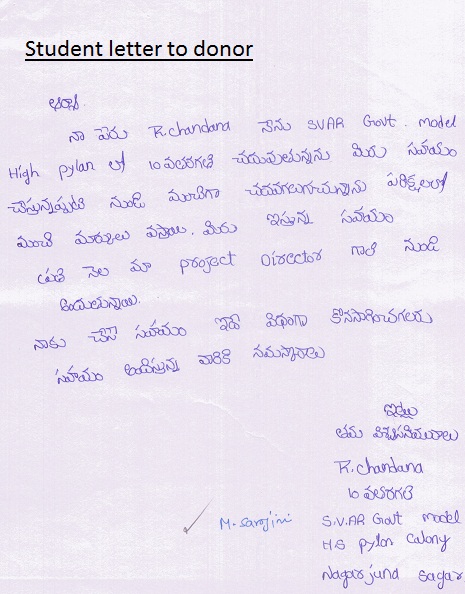 Student letter to donor
ఆర్యా.
నా పేరు R.chandana నేను SVAR Govt. model
High pylon లో 10వతరగతి చదువుతున్నను మీరు సహయం
చేస్తున్నప్పటి నుండి మంచిగా చదవగలుగుచున్నాను పరిక్షలలో
మంచి మార్కులు వస్తాయి. మీరు ఇస్తున్న సహయం
ప్రతి నెల మా project Director గారి నుండి
అందుతున్నాయి.
నాకు చేసే సహయం ఇదే విధంగా కొనసాగించగలరు
సహయం అందిస్తున్న వారికి నమస్కారాలు
ఇట్లు
తమ
R.chandana
10 వతరగతి
M. Sarojini S.V.AR Govt model
H.S pylon Calony
Nagarjuna Sagar